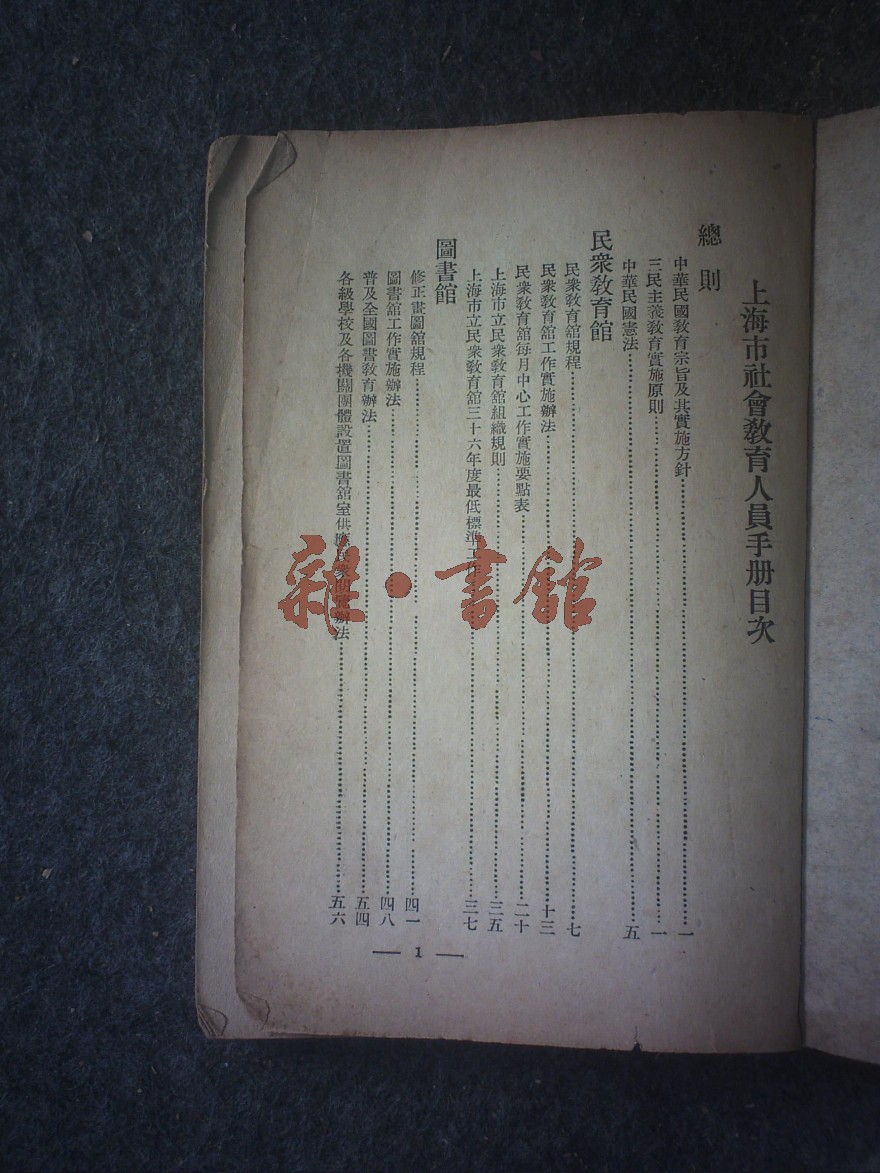 上海市社會敎育人員手册目次
總則
中華民國敎育宗旨及其實施方針……一
三民主義敎育實施原則……一
中華民國憲法……五
民衆敎育館
民衆敎育舘規程……七
民衆敎育舘工作實施辦法……十三
民衆敎育舘每月中心工作實施要點表……二十
上海市立民衆敎育舘組織規則……三五
上海市立民衆敎育舘三十六年度最低標準工作……三七
圖書館
修正書圖舘規程……四一
圖書舘工作實施辦法……四八
普及全國圖書敎育辦法……五四
各級學校及各機關團體設置圖書舘室供應民衆閱覽辦法……五六
— 1 —
雜·書館